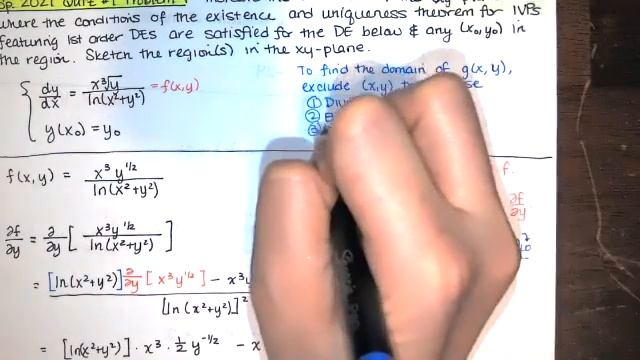 Sp. 2021 Quiz #1 Problem 1
where the conditions of the existence and uniqueness theorem for IVPs
featuring 1st order DEs are satisfied for the DE below & any (x₀, y₀) in
the region. Sketch the region(s) in the xy-plane.
dy/dx = x³√y / ln(x²+y²) = f(x,y)
y(x₀) = y₀
To find the domain of g(x, y),
exclude (x,y)
①
②
③
f(x,y) = x³ y^1/2 / ln(x²+y²)
∂f/∂y = ∂/∂y [ x³y^1/2 / ln(x²+y²) ]
= [ln(x²+y²)] ∂/∂y [x³ y^1/2] - x³
[ln(x²+y²)]²
= [ln(x²+y²)] · x³ · ½ y^-1/2 - x
f.
∂f/∂y